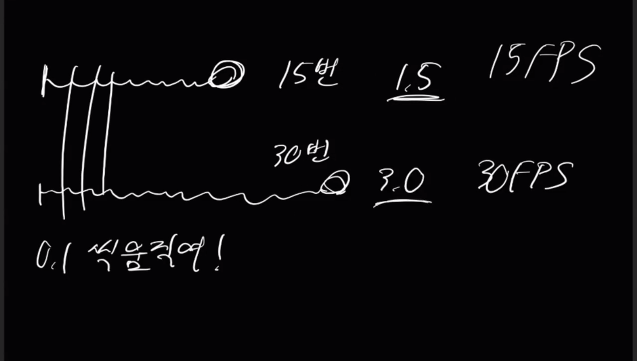 15번 1.5 15FPS
30번 3.0 30FPS
0.1 씩움직여!